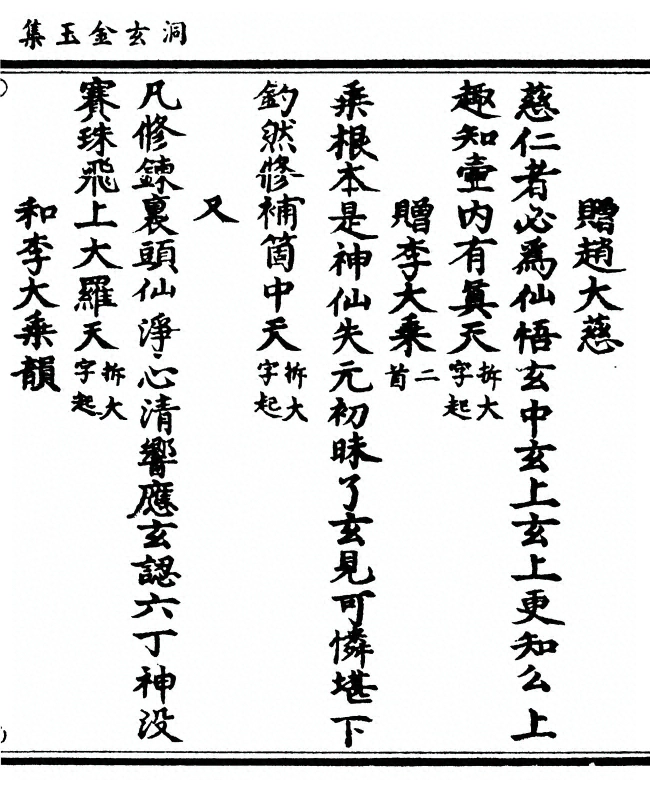 洞玄金玉集
贈趙大慈
慈仁者必爲仙悟玄中玄上玄上更知么上
趣知壷内有眞天拆大字起
贈李大乘二首
乘根本是神仙失元初昧了玄見可憐堪下
釣然修補箇中天拆大字起
又
凡修鍊裏頭仙淨心清響應玄認六丁神没
賽珠飛上大羅天拆大字起
和李大乘韻